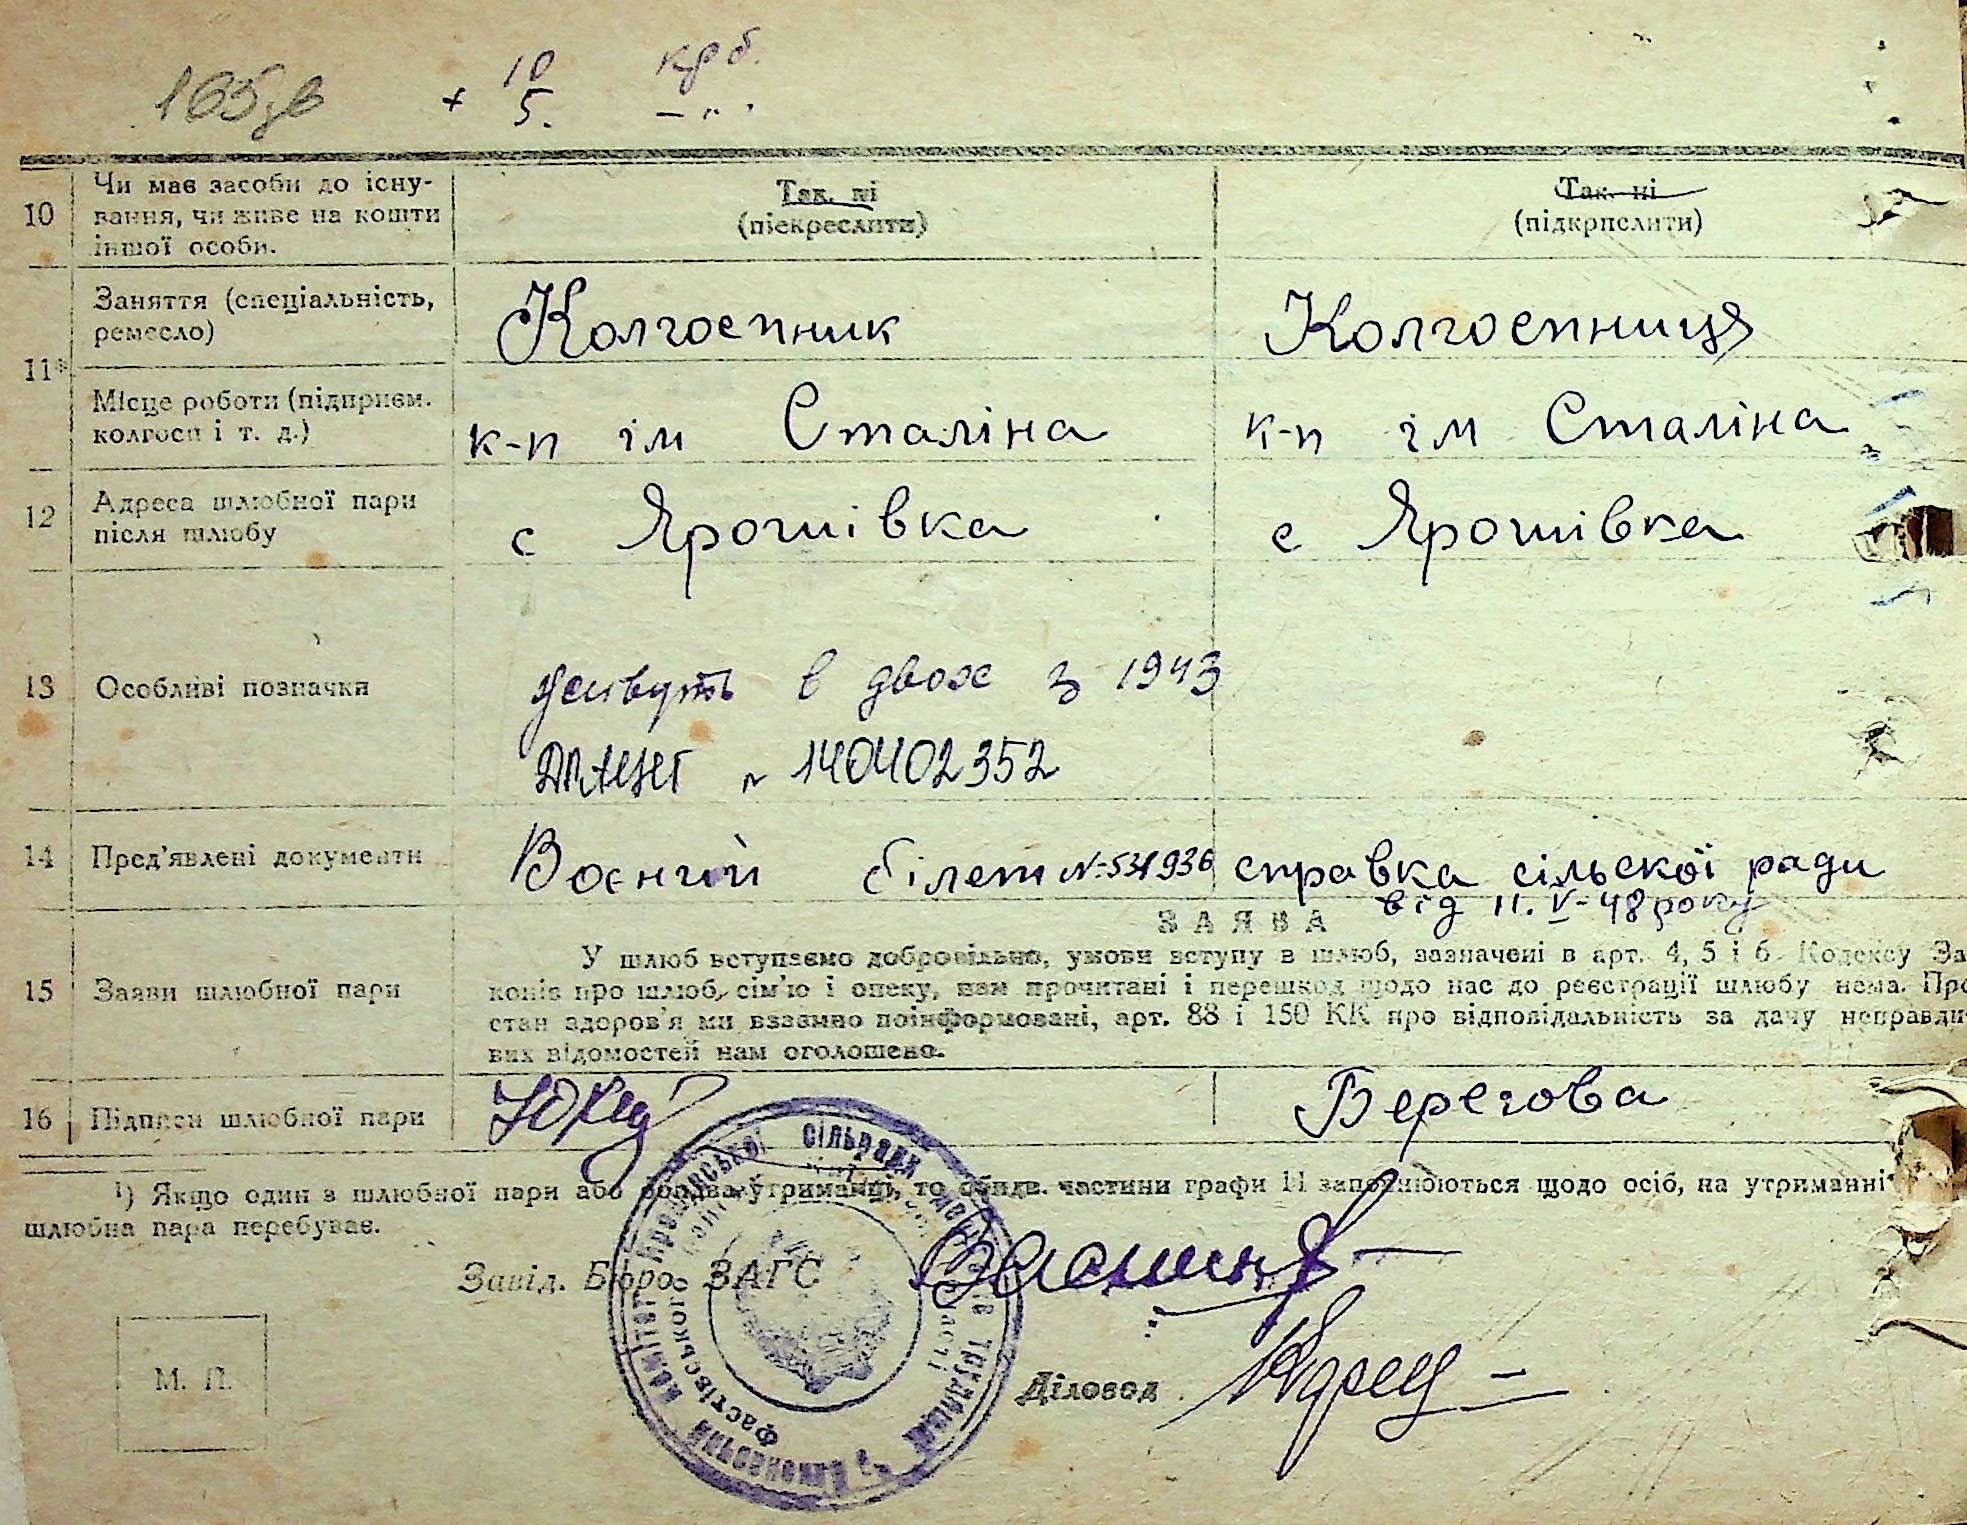 + 10 крб.
5. — „ .
10 Чи має засоби до існу-
вання, чи живе на кошти
іншої особи.
Так. ні
(підкреслити)
Так. ні
(підкрпслити)
11 Заняття (спеціальність,
ремесло)
Колгоспник
Колгоспниця
Місце роботи (підприєм.
колгосп і т. д.)
к-п ім Сталіна
к-п ім Сталіна
12 Адреса шлюбної пари
після шлюбу
с Ярошівка
с Ярошівка
13 Особливі позначки
живуть в двох з 1943
№ 140402352
14 Пред'явлені документи
Воєний білет № 531936
справка сільскої ради
від 11. V-48 року
ЗАЯВА
15 Заяви шлюбної пари
У шлюб вступаємо добровільно, умови вступу в шлюб, зазначені в арт. 4, 5 і 6 Кодексу За
конів про шлюб, сім'ю і опеку, нам прочитані і перешкод щодо нас до реєстрації шлюбу нема. Про
стан здоров'я ми взаємно поінформовані, арт. 88 і 150 КК про відповідальність за дачу неправди-
вих відомостей нам оголошено.
16 Підписи шлюбної пари
Берегова
¹) Якщо один з шлюбної пари або обидва утриманці, то обидв. частини графи 11 заповнюються щодо осіб, на утриманні
шлюбна пара перебуває.
Завід. Бюро ЗАГС
М. П.
Діловод
виконавчий комітет Ярошівської сільради депутатів трудящих
Фастівського області